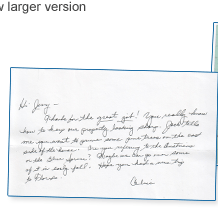 w larger version
Hi Jerry –
Thanks for the great gift! You really know
how to keep our property looking sharp. Good talks
me you want to prune some pine trees on the east
side of the house. Are you referring to the Austrians
or the Blue Spruce? Maybe we can go over some
of it in early fall. Hope you had a nice trip
to Florida!